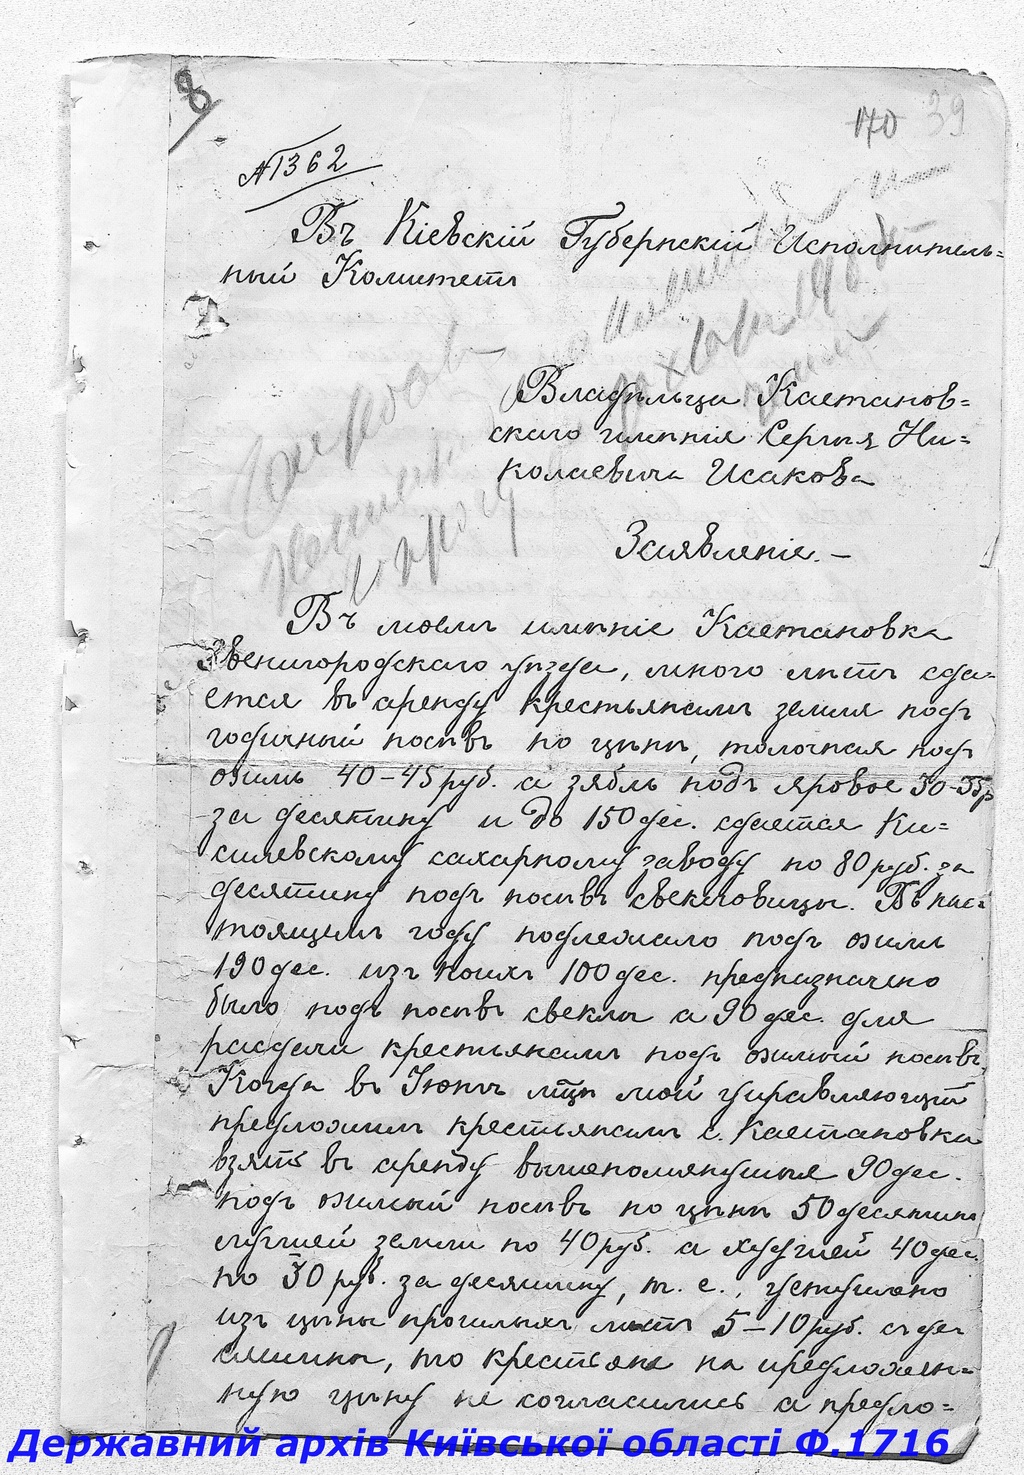 8
170 39
№1362
Въ Кіевскій Губернскій Исполнитель=
ный Комитетъ
Владѣльца Каетанов=
скаго имѣнія Сергѣя Ни=
колаевича Исакова
Заявленіе. –
Въ моемъ имѣніе Каетановка
Звенигородскаго уѣзда, много лѣтъ сда-
ется въ аренду крестьянамъ земля подъ
годичный посѣвъ по цѣнѣ, толочная подъ
озимь 40-45 руб. а зябль подъ яровое 30-35р
за десятину и до 150 дес. сдается Ки=
селевскому сахарному заводу по 80 руб. за
десятину подъ посѣвъ свекловицы. Въ нас=
тоящемъ году подлежало подъ озими
190 дес. изъ коихъ 100 дес. предназначено
было подъ посѣвъ свеклы а 90 дес. для
раздачи крестьянамъ подъ озимый посѣвъ,
Когда въ Іюнѣ мцѣ мой управляющій
предложилъ крестьянамъ с. Каетановки
взять въ аренду вышепомянутыя 90 дес.
подъ озимый посѣвъ по цѣнѣ 50 десятинъ
лучшей земли по 40 руб. а худшей 40 дес.
по 30 руб. за десятину, т. е., уступлено
изъ цѣны прошлыхъ лѣтъ 5-10 руб. съ де
сятины, то крестьяне на предложен=
ную цѣну не согласились а предло=
Державний архів Київської області Ф.1716